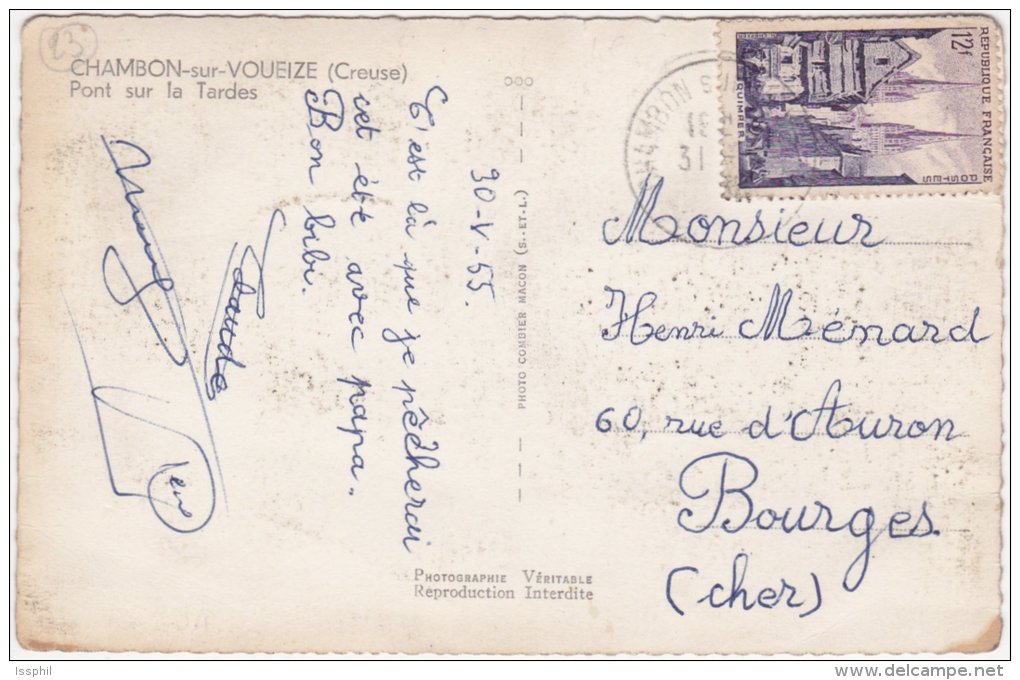 23
CHAMBON-sur-VOUEIZE (Creuse)
Pont sur la Tardes
30-V-55.
C'est là que je pêcherai
cet été avec papa.
Bon bibi.
Claude
PHOTO COMBIER MACON (S.-ET-L.)
PHOTOGRAPHIE VÉRITABLE
Reproduction Interdite
REPUBLIQUE FRANÇAISE
POSTES
12F
QUIMPER
CHAMBON S
18
31
Monsieur
Henri Ménard
60, rue d'Auron
Bourges
(cher)
Issphil
delcampe.net